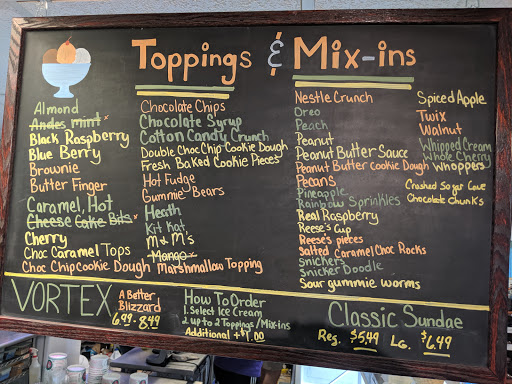 Toppings & Mix-ins
Almond
Andes mint
Black Raspberry
Blue Berry
Brownie
Butter Finger
Caramel, Hot
Cheese Cake Bits
Cherry
Choc Caramel Tops
Choc Chip Cookie Dough
Chocolate Chips
Chocolate Syrup
Cotton Candy Crunch
Double Choc Chip Cookie Dough
Fresh Baked Cookie Pieces
Hot Fudge
Gummie Bears
Heath
Kit Kat
M & M's
Mango
Marshmallow Topping
Nestle Crunch
Oreo
Peach
Peanut
Peanut Butter Sauce
Peanut Butter Cookie Dough
Pecans
Pineapple
Rainbow Sprinkles
Real Raspberry
Reese's Cup
Reese's pieces
Salted Caramel Choc Rocks
Snickers
Snicker Doodle
Sour gummie worms
Spiced Apple
Twix
Walnut
Whipped Cream
Whole Cherry
Whoppers
Crushed Sugar Cone
Chocolate Chunks
VORTEX
A Better
Blizzard
6.99 - 8.49
How To Order
1. Select Ice Cream
2. up to 2 Toppings/Mix-ins
Additional +$1.00
Classic Sundae
Reg. $5.49 LG. $6.49